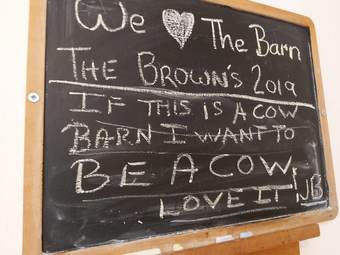 We ♥ The Barn
THE BROWN'S 2019
IF THIS IS A COW
BARN I WANT TO
BE A COW.
LOVE IT NB